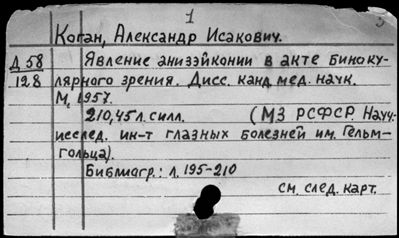 1
Коган, Александр Исакович.
Д 58
128
Явление анизэйконии в акте биноку-
лярного зрения. Дисс. канд. мед. наук.
М, 1957.
210, 45 л. силл. (МЗ РСФСР. Науч.
исслед. ин-т глазных болезней им. Гельм-
гольца).
Библиогр.: л. 195-210
см. след. карт.